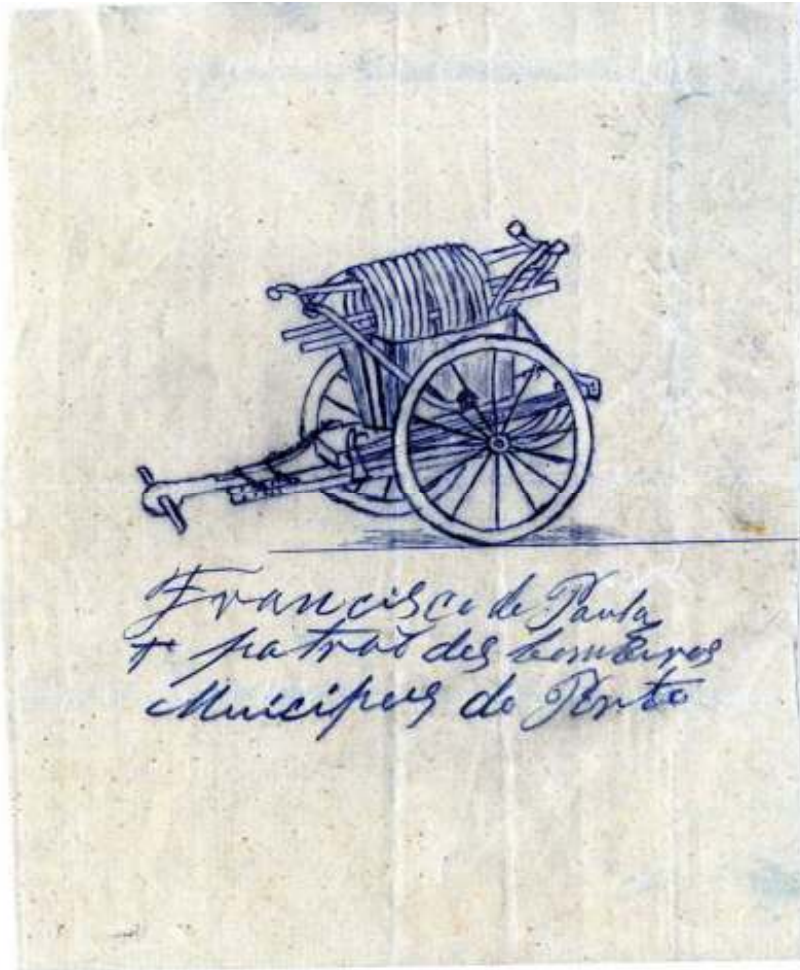 Francisco de Paula
+ patrão dos bomberos
Muicipeis do Porto